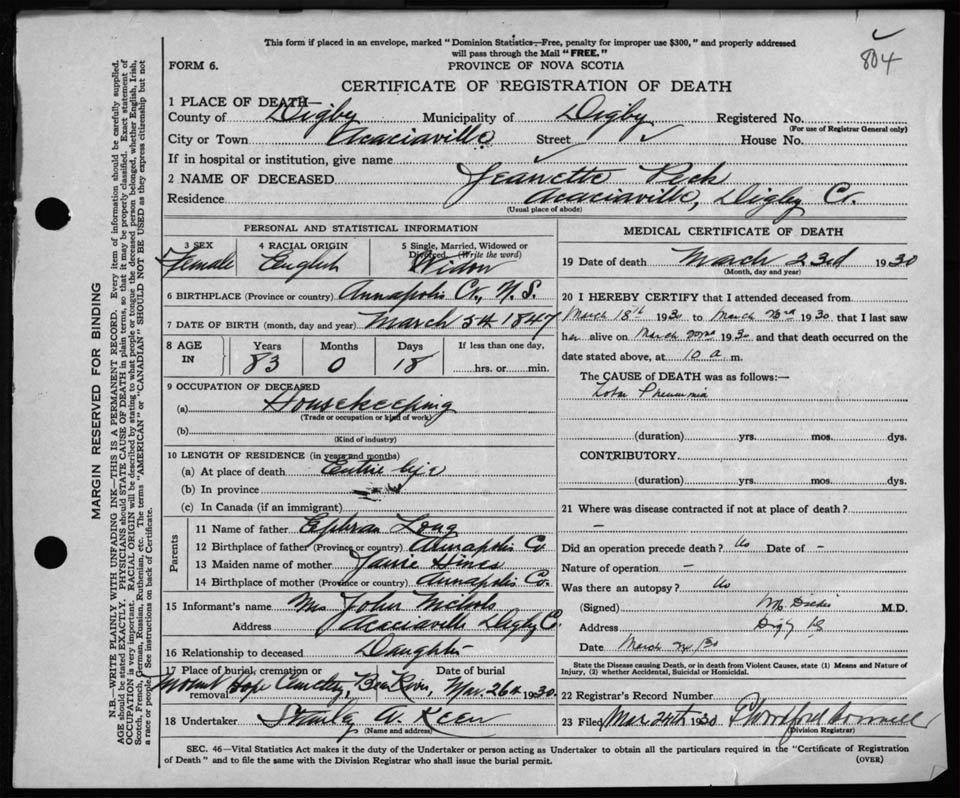 804
This form if placed in an envelope, marked "Dominion Statistics—Free, penalty for improper use $300," and properly addressed
will pass through the Mail "FREE."
FORM 6.
PROVINCE OF NOVA SCOTIA
CERTIFICATE OF REGISTRATION OF DEATH
1 PLACE OF DEATH—
County of Digby Municipality of Digby Registered No.
(For use of Registrar General only)
City or Town Acaciaville Street ✓ House No.
If in hospital or institution, give name ✓
2 NAME OF DECEASED Jeanette Peck
Residence Acaciaville, Digby Co.
(Usual place of abode)
PERSONAL AND STATISTICAL INFORMATION
3 SEX 4 RACIAL ORIGIN 5 Single, Married, Widowed or
Divorced (Write the word)
Female English Widow
6 BIRTHPLACE (Province or country) Annapolis Co., N.S.
7 DATE OF BIRTH (month, day and year) March 5th 1847
8 AGE IN Years Months Days If less than one day,
83 0 18 hrs. or min.
9 OCCUPATION OF DECEASED
(a) Housekeeping
(Trade or occupation or kind of work)
(b)
(Kind of industry)
10 LENGTH OF RESIDENCE (in years and months)
(a) At place of death Entire life
(b) In province
(c) In Canada (if an immigrant)
Parents
11 Name of father Ephran Long
12 Birthplace of father (Province or country) Annapolis Co.
13 Maiden name of mother Hines
14 Birthplace of mother (Province or country) Annapolis Co.
15 Informant's name Mrs John Nichols
Address Acaciaville Digby Co.
16 Relationship to deceased Daughter
17 Place of burial, cremation or removal Date of burial
Mount Hope Cemetery, Bear River, Mar. 26th 1930.
18 Undertaker Stanley A. Keen
(Name and address)
MEDICAL CERTIFICATE OF DEATH
19 Date of death March 23rd 1930
(Month, day and year)
20 I HEREBY CERTIFY that I attended deceased from
March 18th 1930 to March 1930 that I last saw
her alive on March 1930 and that death occurred on the
date stated above, at 10 a m.
The CAUSE of DEATH was as follows:—
Lobar Pneumonia
(duration) yrs. mos. dys.
CONTRIBUTORY.
(duration) yrs. mos. dys.
21 Where was disease contracted if not at place of death?
—
Did an operation precede death? No Date of —
Nature of operation —
Was there an autopsy? No
(Signed) M.D.
Address Digby N.S.
Date March /30
State the Disease causing Death, or in death from Violent Causes, state (1) Means and Nature of
Injury, (2) whether Accidental, Suicidal or Homicidal.
22 Registrar's Record Number
23 Filed Mar 24th 1930
(Division Registrar)
SEC. 46—Vital Statistics Act makes it the duty of the Undertaker or person acting as Undertaker to obtain all the particulars required in the "Certificate of Registration
of Death" and to file the same with the Division Registrar who shall issue the burial permit.
(OVER)
MARGIN RESERVED FOR BINDING
N.B.—WRITE PLAINLY WITH UNFADING INK—THIS IS A PERMANENT RECORD. Every item of information should be carefully supplied.
AGE should be stated EXACTLY. PHYSICIANS should STATE CAUSE OF DEATH in plain terms, so that it may be properly classified. Exact statement of
OCCUPATION is very important. RACIAL ORIGIN will be described by stating to what people or tongue the deceased person belonged, whether English, Irish,
Scotch, French, German, Russian, Ruthenian, etc. The terms "AMERICAN" or "CANADIAN" SHOULD NOT BE USED as they express citizenship but not
a race or people. See instructions on back of Certificate.